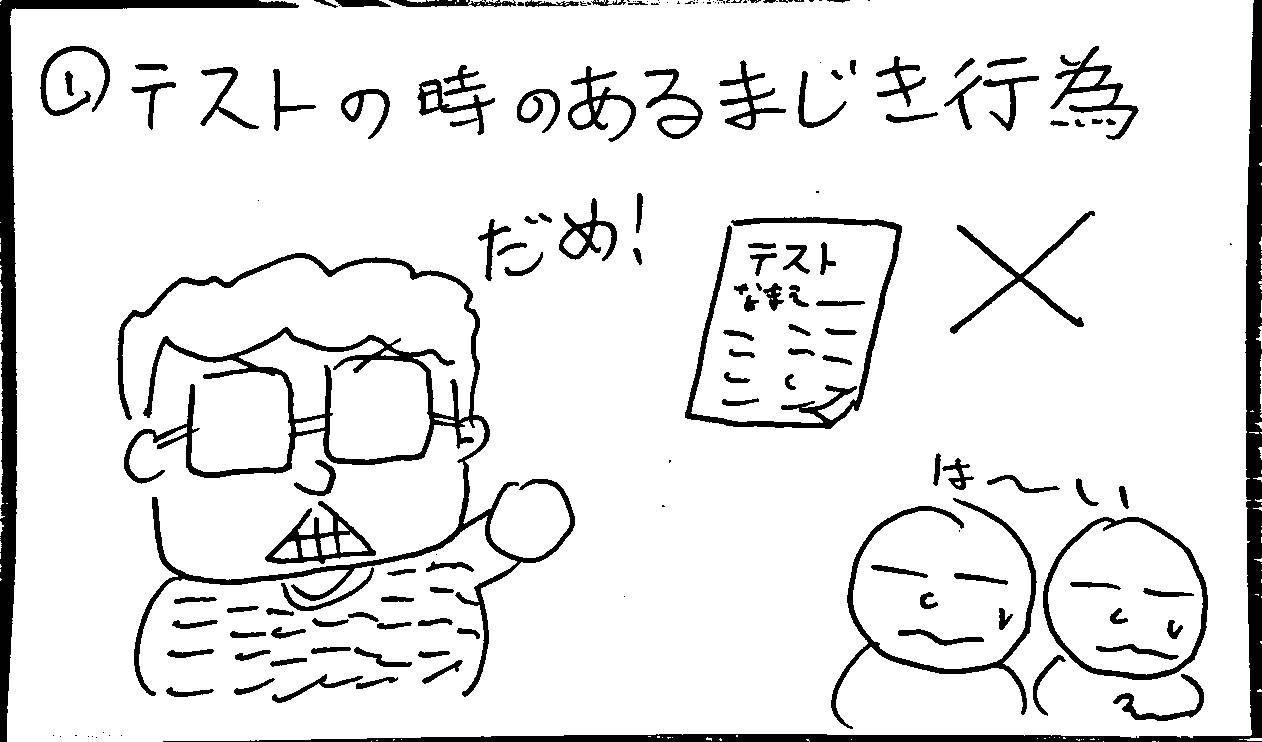 ① テストの時のあるまじき行為
だめ!
テスト
なまえ
は〜い